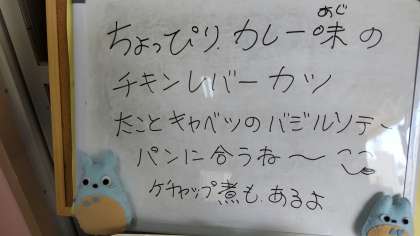 ちょっぴり カレー味の
あじ
チキンレバーカツ
たことキャベツのバジルソテー
パンに合うね〜
ケチャップ煮も あるよ